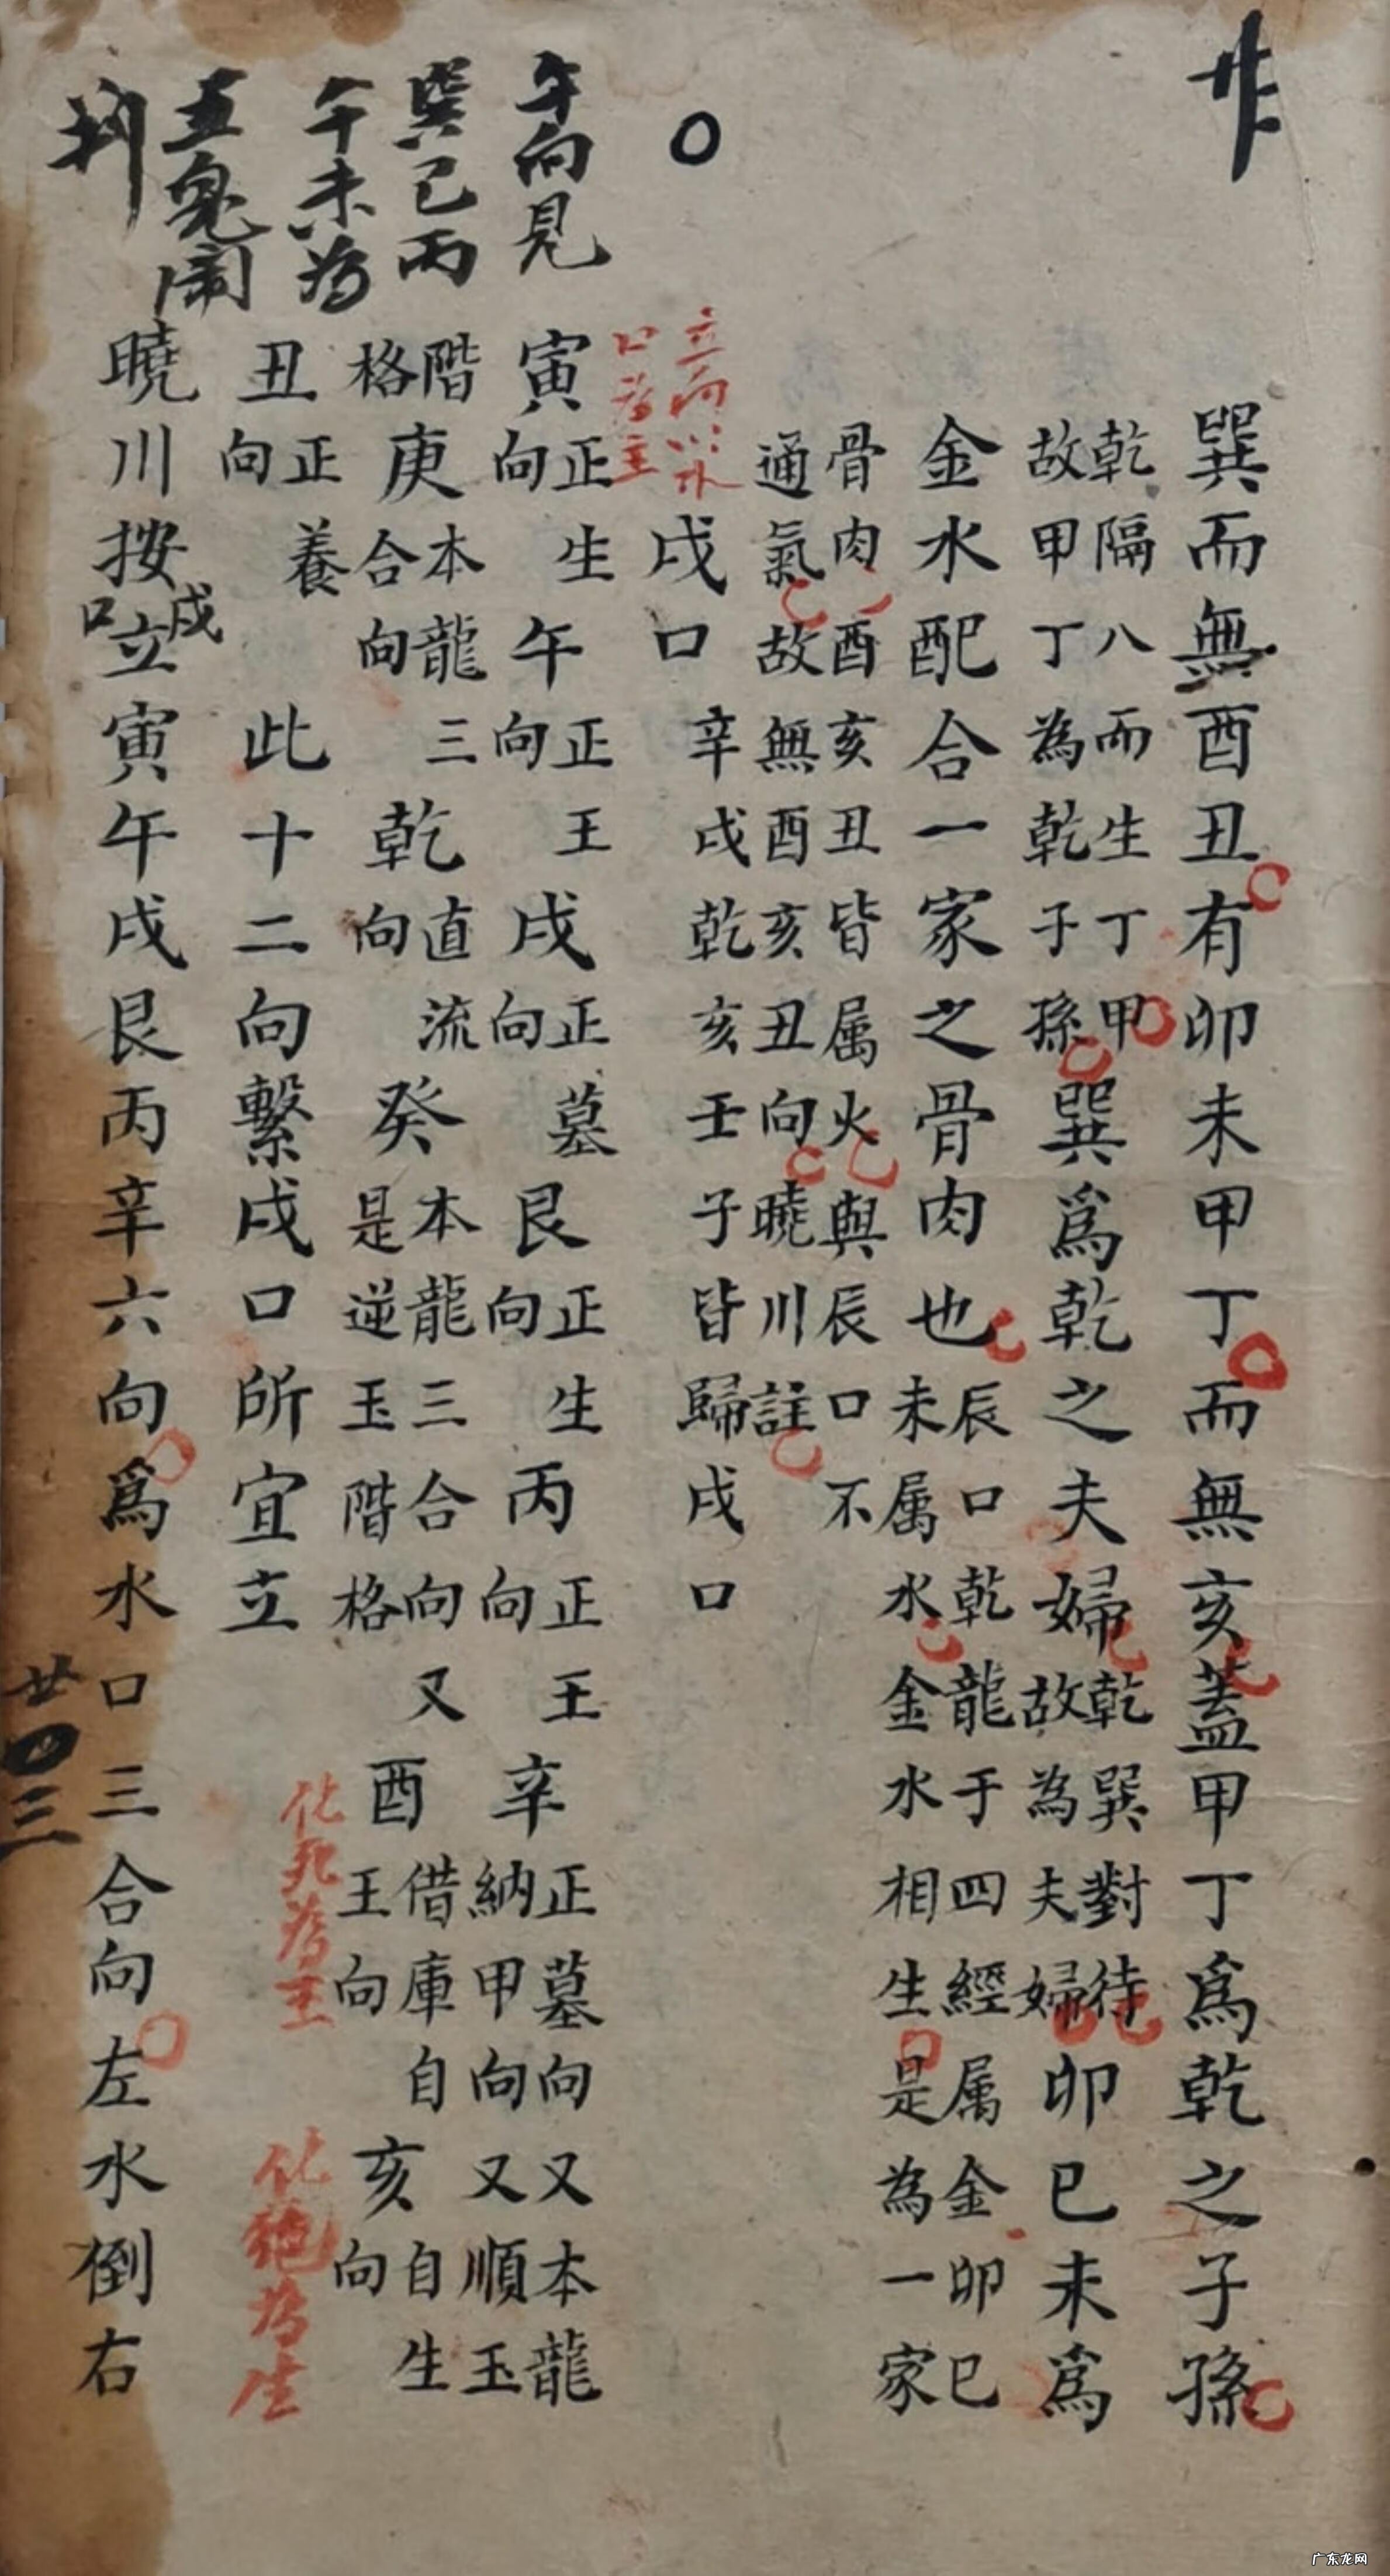 巽而無酉丑有卯未甲丁而無亥蓋甲丁爲乾之子孫
乾隔八而生丁甲
故甲丁為乾子孫
巽爲乾之夫婦
乾巽對待
故為夫婦
卯巳未爲
金水配合一家之骨肉也
辰口乾龍于四經属金卯巳
未属水金水相生是為一家
骨肉酉亥丑皆属火與辰口不
通氣故無酉亥丑向曉川註
戌口
辛戌乾亥壬子皆歸戌口
立向以水
口為主
午向見
巽巳丙
午未為
五鬼鬧
寅
正生
向
午
正王
向
戌
正墓
向
艮
正生
向
丙
正王
向
辛
正墓向又本龍
納甲向又順玉
階
格
庚
本龍三
合向
乾
直流
向
癸
本龍三合向又
是逆玉階格
酉
借庫自
王向
亥
自生
向
丑
正養
向
此十二向繫戌口所宜立
化死為王
化絕為生
曉川按立寅午戌艮丙辛六向爲水口三合向左水倒右
戌
口
廿〇三
广东龙网